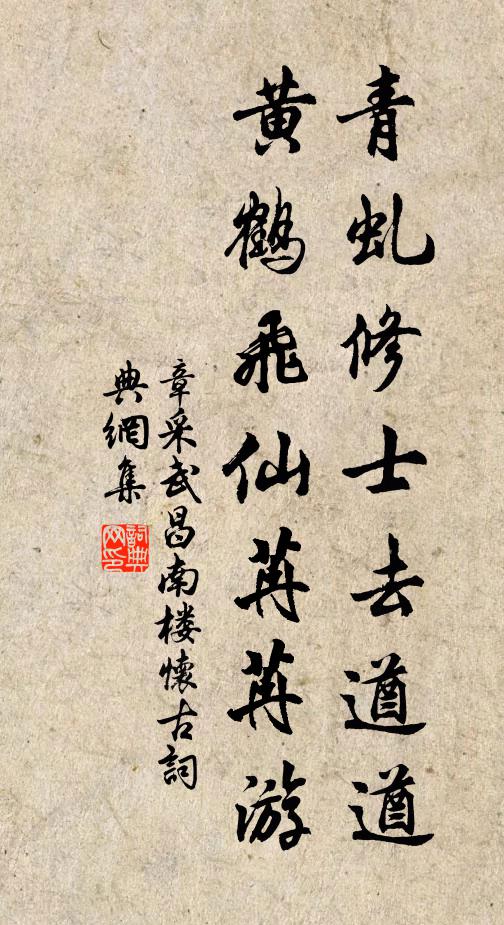 青虬修士去遒遒
黄鶴飛仙苒苒游
章采武昌南楼懷古詞
典網集
詞典
网印